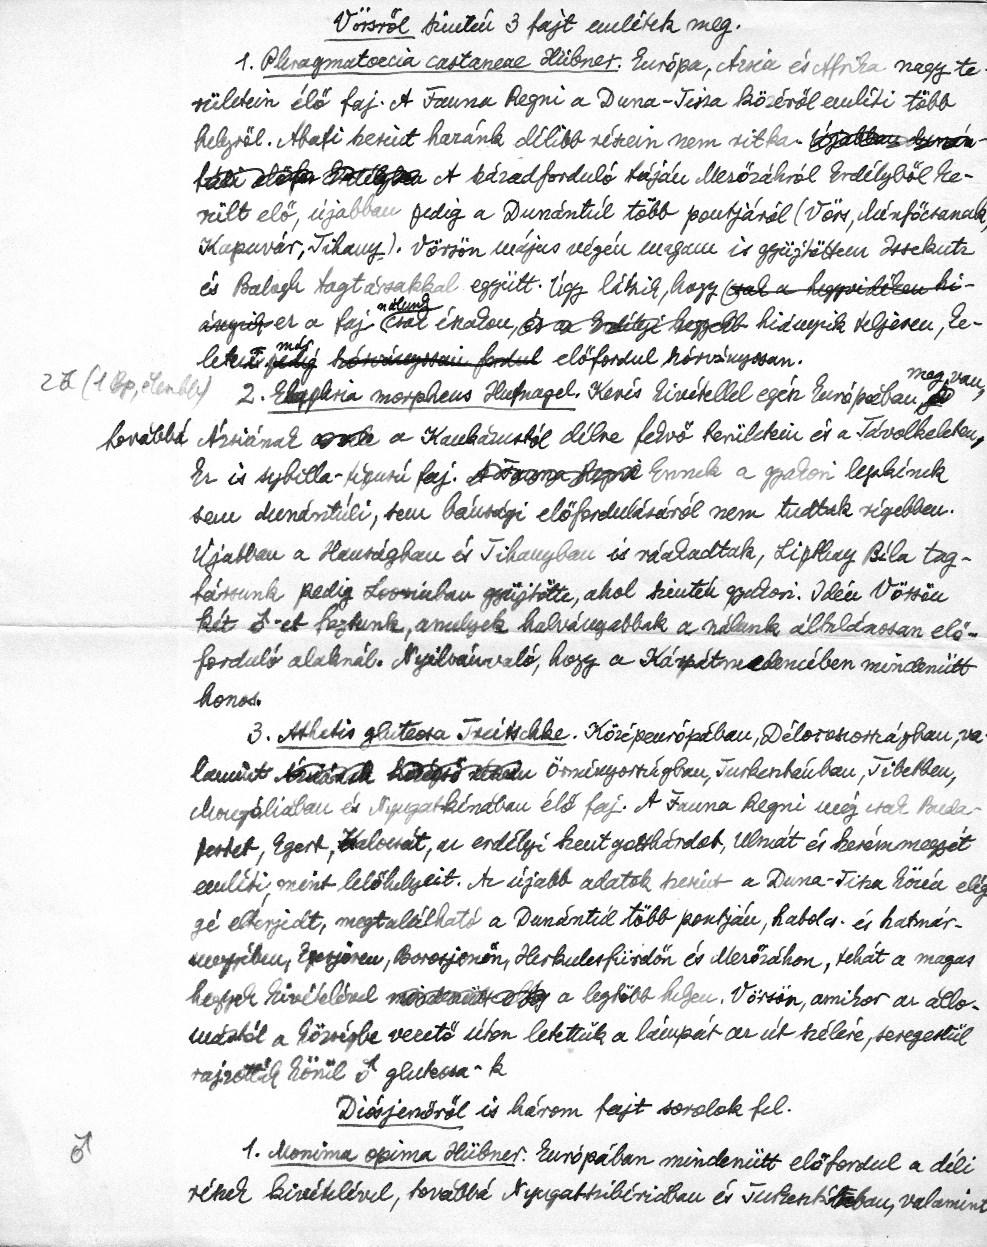 Vörsről szintén 3 fajt említek meg.
1. Phragmatoecia castaneae Hübner. Európa, Ázsia és Afrika nagy te-
rületein élő faj. A Fauna Regni a Duna-Tisza közéről említi több
helyről. Abafi szerint hazánk délibb részein nem ritka. Újabban dunán-
túli A századforduló táján Mezőzáhról Erdélyből ke-
rült elő, újabban pedig a Dunántúl több pontjáról (Vörs, Ménfőcsanak,
Kapuvár, Tihany). Vörsön május végén magam is gyűjtöttem Issekutz
és Balogh tagtársakkal együtt. Úgy látszik, hogy csak a hegyvidéken hi-
ányzik ez a faj nálunk csak északon, és az Erdélyi hegyekb hiányzik teljesen, ke-
leten már pedig fordul előfordul szórványosan.
2. Elaphria morpheus Hufnagel. Kevés kivétellel egész Európában megvan,
továbbá Ázsiának a Kaukázustól délre fekvő területein és a Távolkeleten.
Ez is sybilla-típusú faj. A Fauna Regni Ennek a gyakori lepkének
sem dunántúli, sem bánsági előfordulásáról nem tudtak régebben.
Újabban a Hanságban és Tihanyban is ráakadtak, Lipthay Béla tag-
társunk pedig gyűjtötte, ahol szintén gyakori. Idén Vörsön
két ♂-et fogtunk, amelyek halványabbak a nálunk általánosan elő-
forduló alaknál. Nyilvánvaló, hogy a Kárpátmedencében mindenütt
honos.
3. Athetis gluteosa Treitschke. Középeurópában, Déloroszországban, va-
lamint Ázsiának Örményországban, Turkesztánban, Tibetben,
Mongóliában és Nyugatkínában élő faj. A Fauna Regni még csak Buda-
pestet, Egert, Kalocsát, az erdélyi Szentgotthárdot, Uzsát és
említi, mint lelőhelyeit. Az újabb adatok szerint a Duna-Tisza közén elég
gé elterjedt, megtalálható a Dunántúl több pontján, Szabolcs- és Szatmár-
megyében, Eperjesen, Borosjenőn, Herkulesfürdőn és Mezőzáhon, tehát a magas
hegyek kivételével mindenütt a legtöbb helyen. Vörsön, amikor az állo-
mástól a községbe vezető úton letettük a lámpát az út szélére, seregestül
rajzottak körül ♂ gluteosa-k
Diósjenőről is három fajt sorolok fel.
♂
1. Monima opima Hübner. Európában mindenütt előfordul a déli
részek kivételével, továbbá Nyugatszibériában és Turkesztánban, valamint